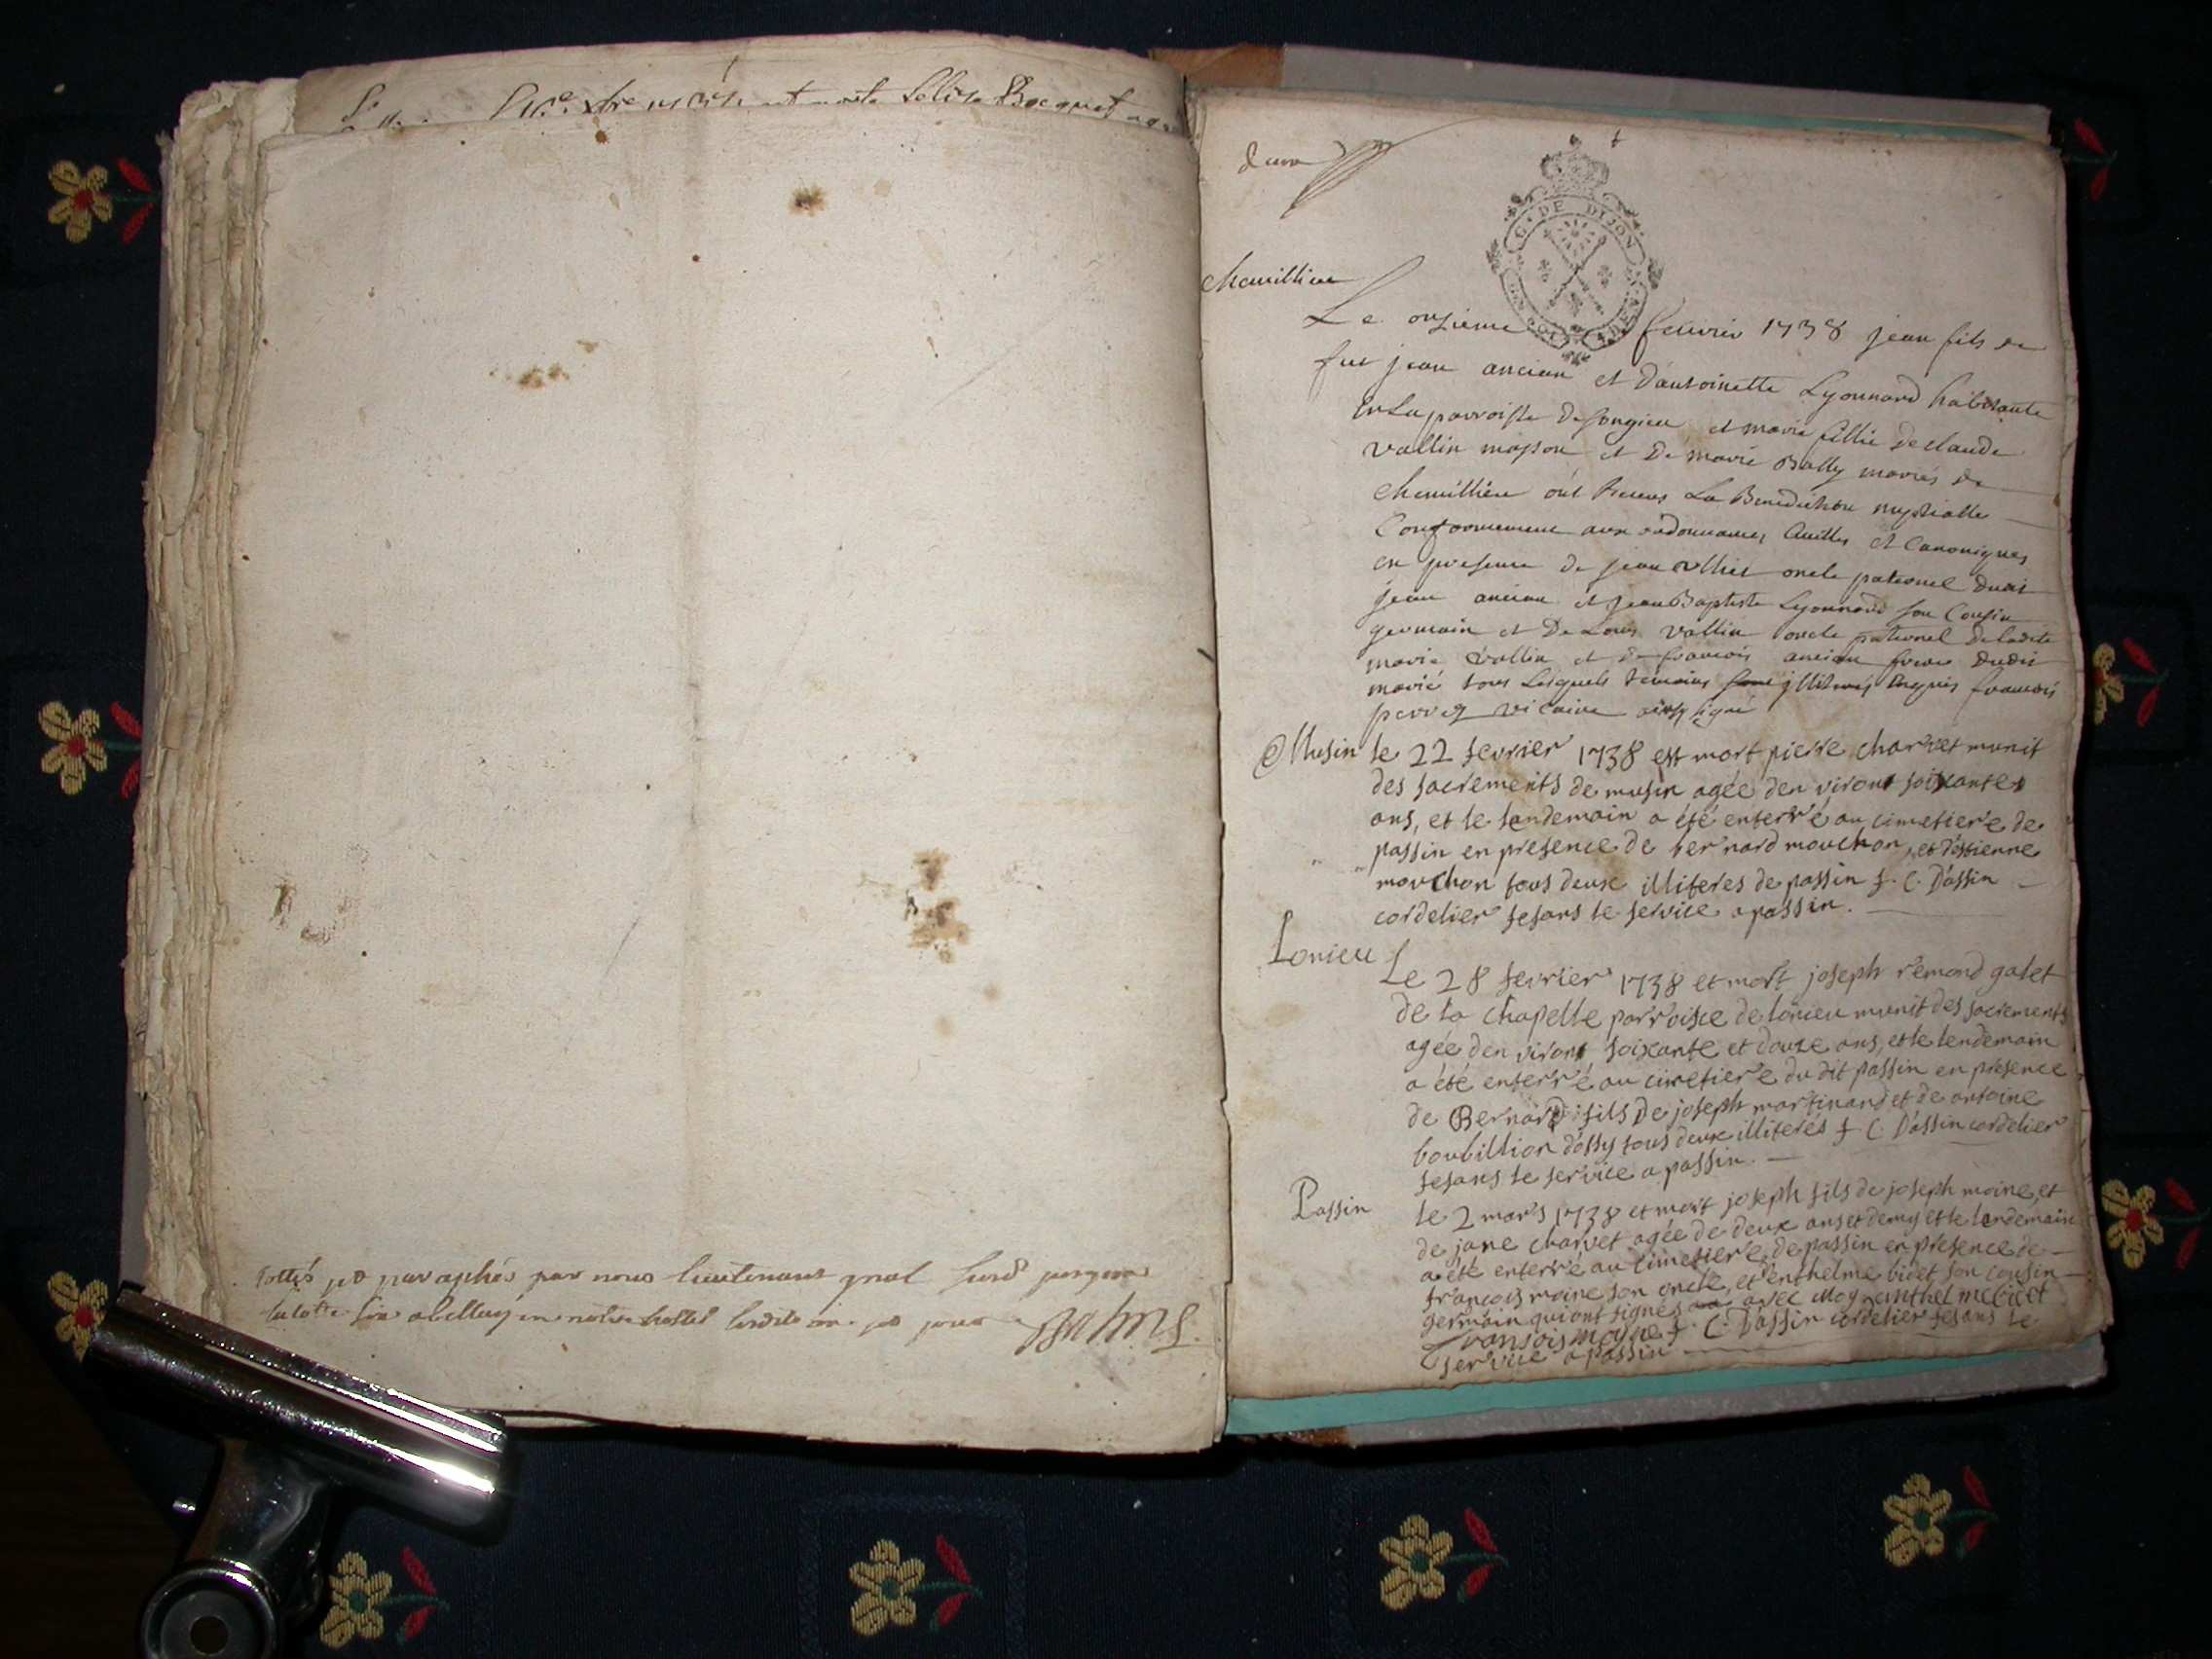 est morte
Cottés et paraphés par nous lieutenant
DE DIJON
chemillieu
Le onzieme feuvrier 1738 jean fils de
fut jean ancian et d'antoinette Lyonnard habitante
en La parroisse de songieu et marie fillie de claude
vallin masson et de marie Bally mariés de
chemillieu ont Receus La Benediction nuptialle
Conformement aux ordonnances Civilles et Canoniques
en presence de jean oncle paternel dudit
jean ancian et jean Baptiste Lyonnard son Cousin
germain et de Louis vallin oncle paternel de ladite
marie vallin et de francois ancian frere dudit
marié tous Lesquels temoins sont illiterés françois
perret vicaire ainsy signé
Musin le 22 fevrier 1738 est mort pierre charvet munit
des sacrements de musin agée den viront soixantes
ans, et le lendemain a été enterré au cimetiere de
passin en presence de bernard mouchon, et d'estienne
mouchon tous deux illiteres de passin f. C. Dassin
cordelier fesans le service a passin.
Lonieu
Le 28 fevrier 1738 et mort joseph remond galet
de la chapelle parroisce de lonieu munit des sacrements
agée den viront soixante et douze ans, et le lendemain
a été enterré au cimetiere du dit passin en présence
de Bernard fils de joseph martinand et de antoine
boubillion d'ossy tous deux illiterés f. C. Dassin cordelier
fesans le service a passin.
Passin
le 2 mars 1738 et mort joseph fils de joseph moine, et
de jane charvet agée de deux ans et demy et le lendemain
a été enterré au cimetiere de passin en presence de
françois moine son oncle, et d'enthelme bidet son cousin
germain qui ont signés avec moy enthelme bidet
fransois moyne f. C. Dassin cordelier fesans le
service a passin